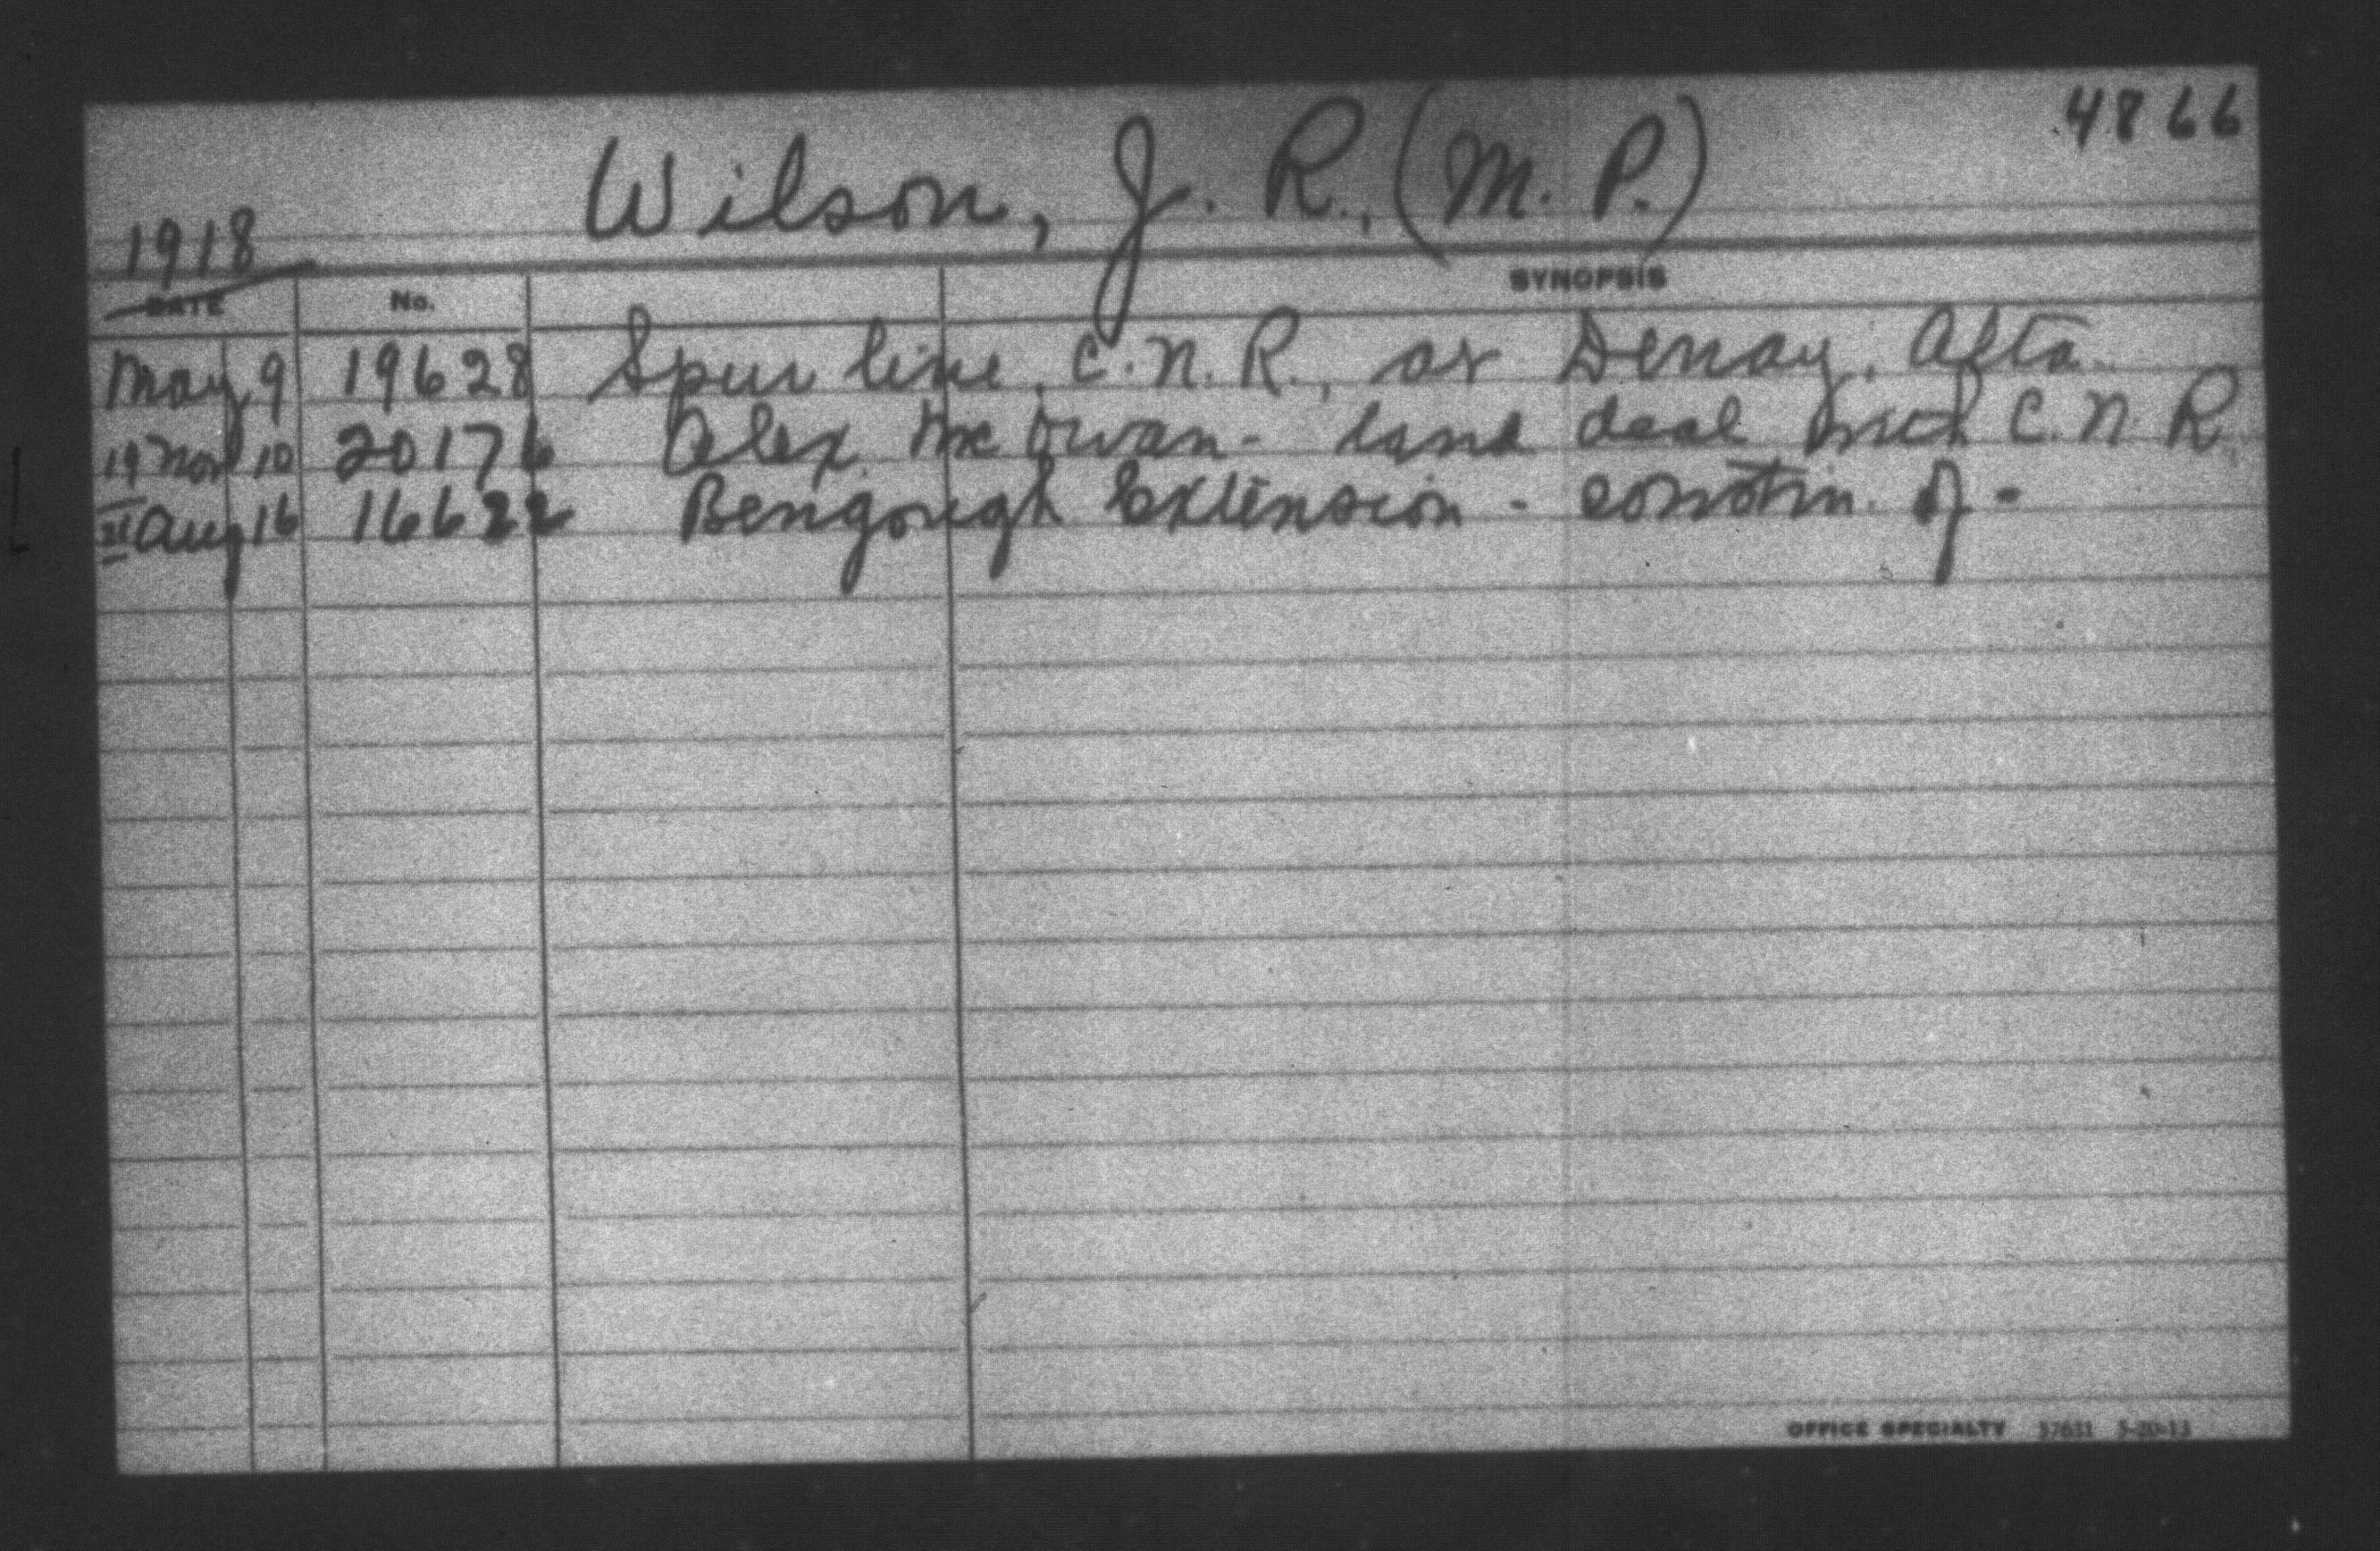 4866
Wilson, J. R., (M. P.)
1918
SYNOPSIS
DATE No.
May 9 19628 Spur line, C. N. R., at Denay, Alta.
19 Nov 10 20176 Alex. McOwan - land deal with C. N. R.
21 Aug 16 16622 Bengough Extension - constin. of -
OFFICE SPECIALTY 57631 5-20-13